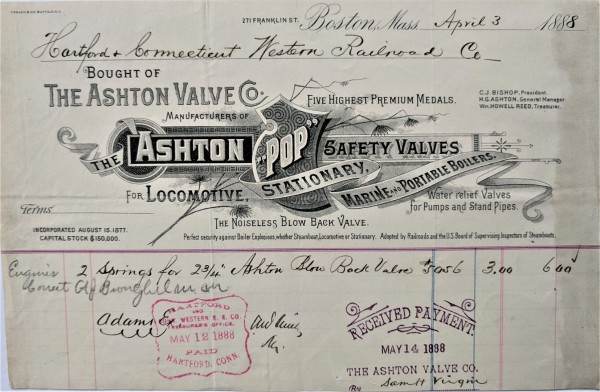 271 FRANKLIN ST. Boston, Mass. April 3 1888
Hartford & Connecticut Western Railroad Co
BOUGHT OF
THE ASHTON VALVE CO.
MANUFACTURERS OF
FIVE HIGHEST PREMIUM MEDALS.
C.J. BISHOP, President.
H.G. ASHTON, General Manager
Wm. HOWELL REED, Treasurer.
THE ASHTON "POP" SAFETY VALVES
FOR LOCOMOTIVE, STATIONARY, MARINE AND PORTABLE BOILERS.
Water relief Valves
for Pumps and Stand Pipes.
Terms
THE NOISELESS BLOW BACK VALVE.
INCORPORATED AUGUST 15, 1877.
CAPITAL STOCK $150,000.
Perfect security against Boiler Explosions, whether Steamboat, Locomotive or Stationary. Adopted by Railroads and the U.S. Board of Supervising Inspectors of Steamboats.
2 Springs for 2 3/4" Ashton Blow Back Valve 3.00 6.00
Correct
Adams Ex
HARTFORD
AND
WESTERN R. R. CO.
TREASURER'S OFFICE.
MAY 12 1888
PAID
HARTFORD, CONN.
RECEIVED PAYMENT.
MAY 14 1888
THE ASHTON VALVE CO.
By Sam H Virgin